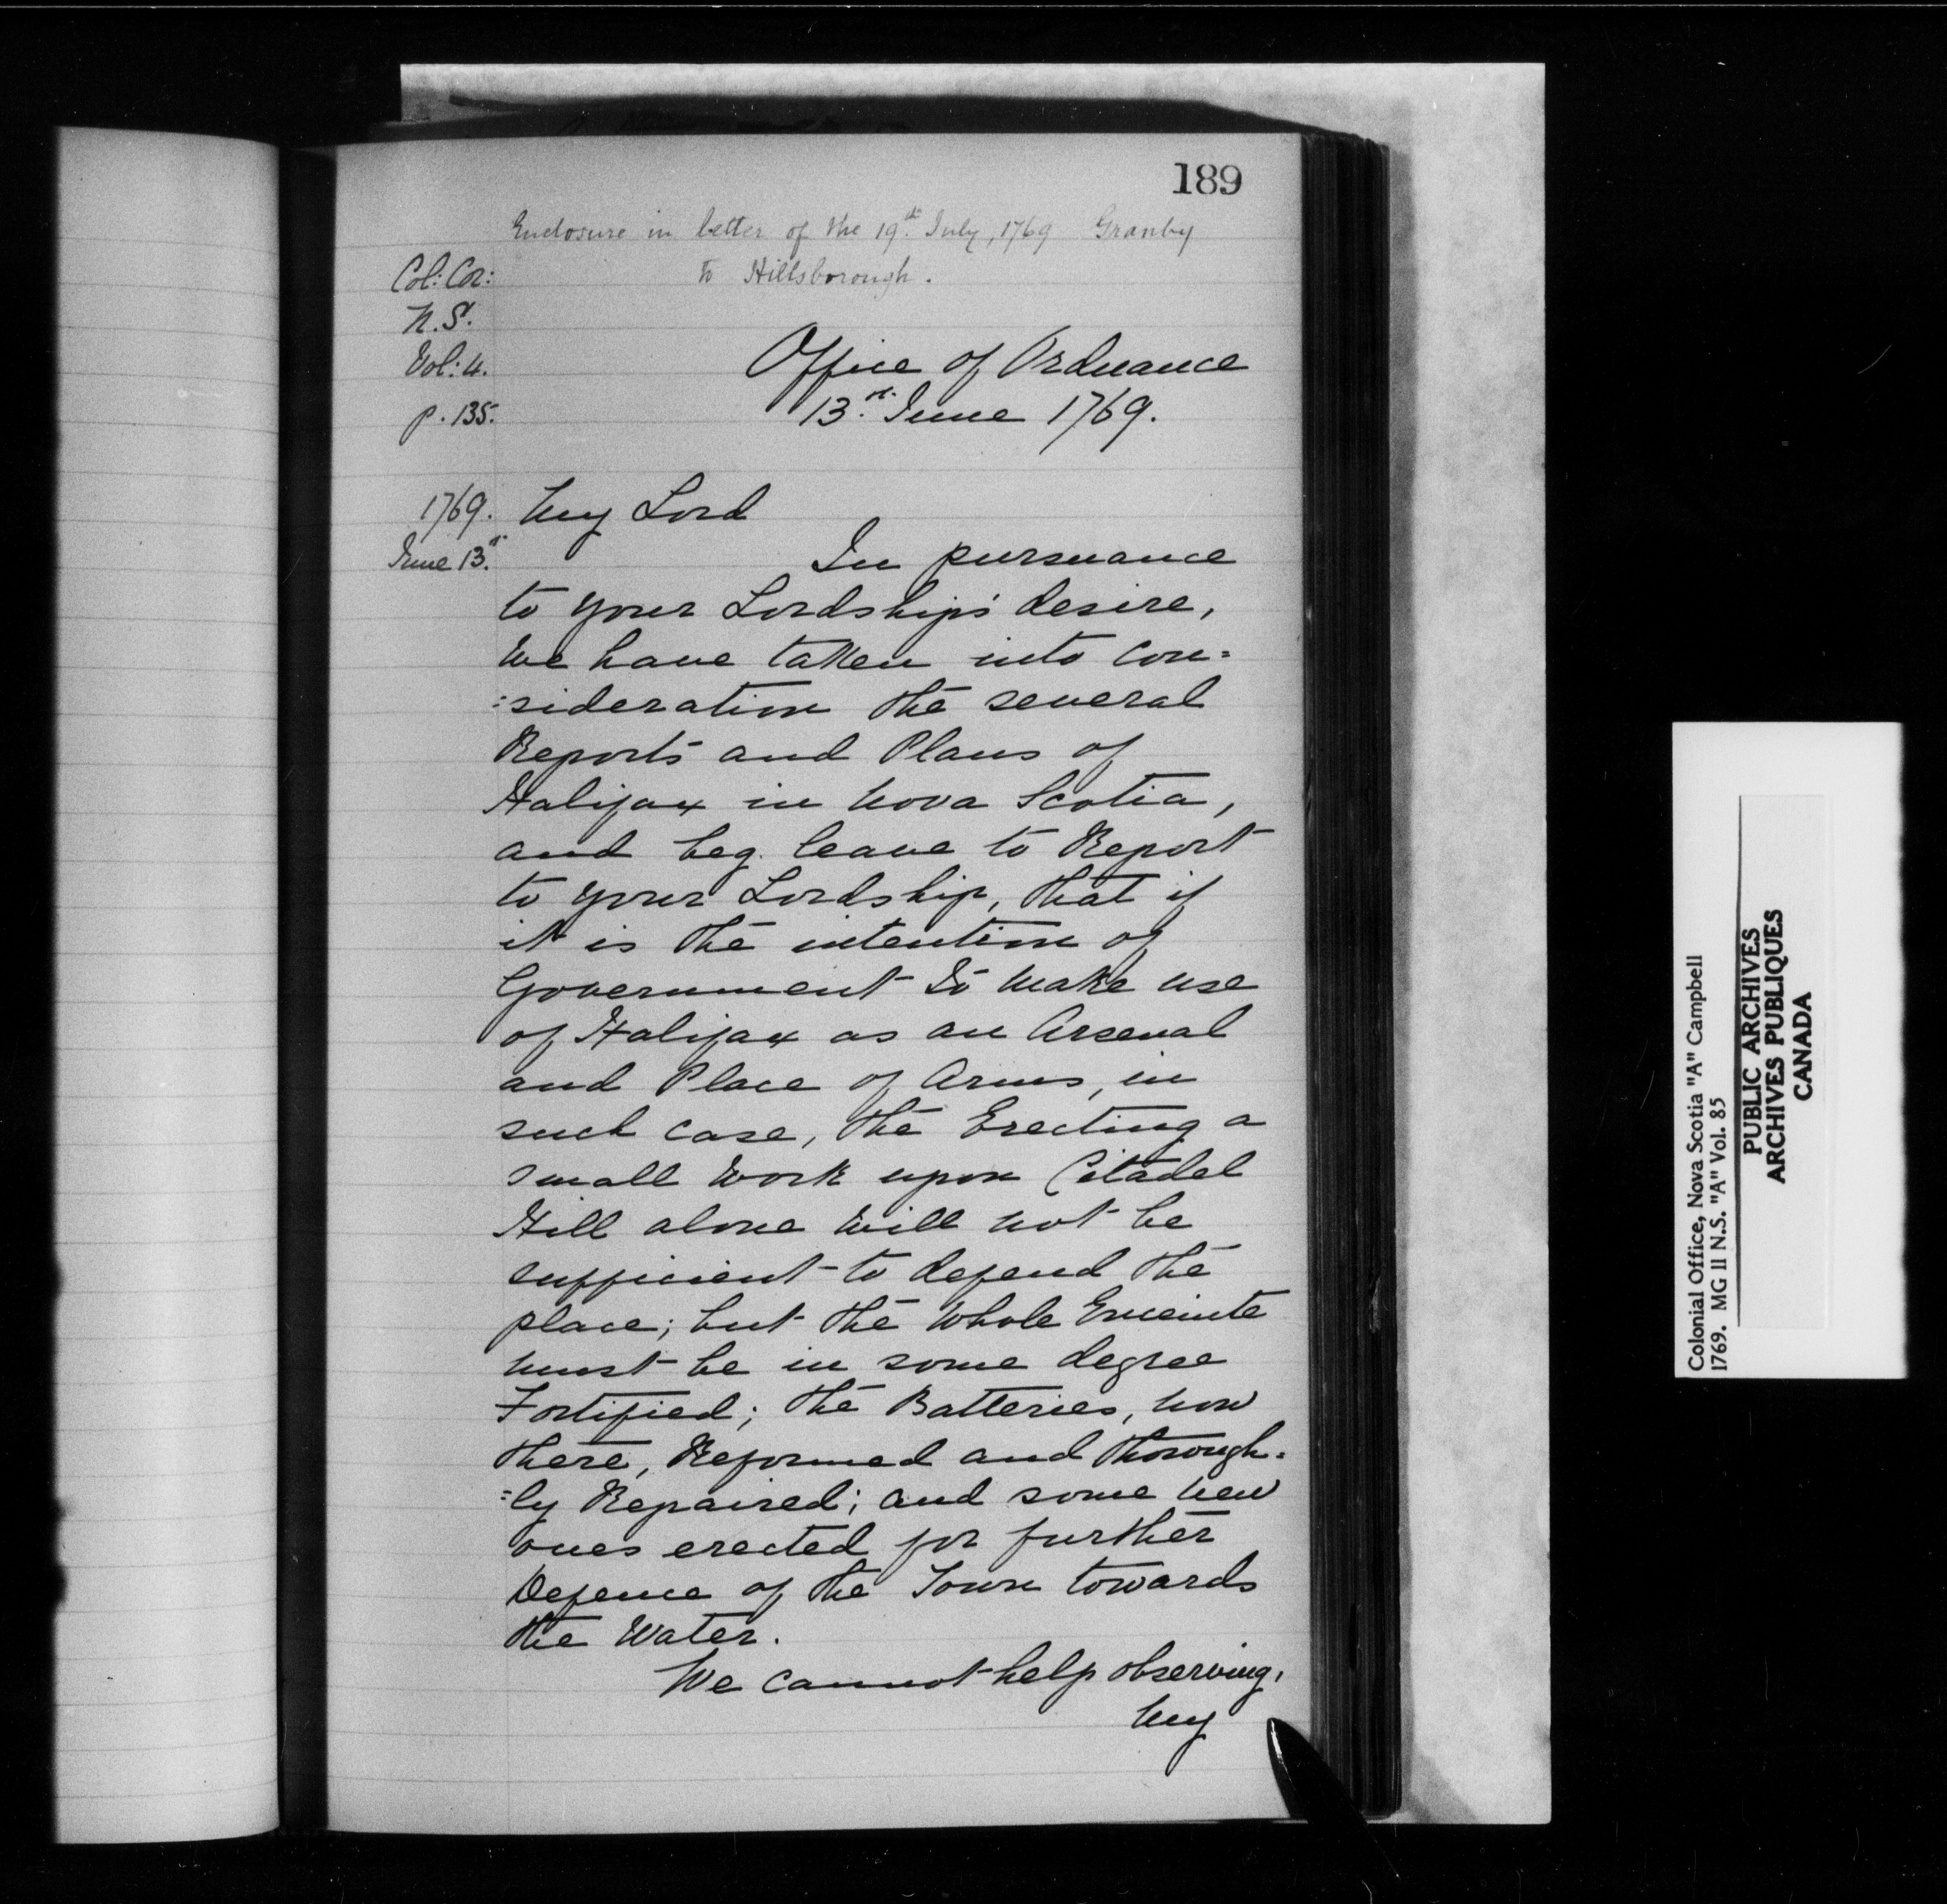 189
Enclosure in letter of the 19th July, 1769 Granby
to Hillsborough.
Col: Cor:
N.S.
Vol: 4.
p. 135.
Office of Ordnance
13th June 1769.
1769.
June 13th
My Lord
In pursuance
to your Lordship's desire,
We have taken into con=
=sideration the several
Reports and Plans of
Halifax in Nova Scotia,
and beg leave to Report
to your Lordship, that if
it is the intention of
Government to make use
of Halifax as an Arsenal
and Place of Arms, in
such case, the Erecting a
small Work upon Citadel
Hill alone will not be
sufficient to defend the
place; but the Whole Enceinte
must be in some degree
Fortified; the Batteries, now
there, Reformed and thorough=
=ly Repaired; and some new
ones erected for further
Defence of the Town towards
the Water.
We cannot help observing,
My
Colonial Office, Nova Scotia "A" Campbell
1769. MG 11 N.S. "A" Vol. 85
PUBLIC ARCHIVES
ARCHIVES PUBLIQUES
CANADA